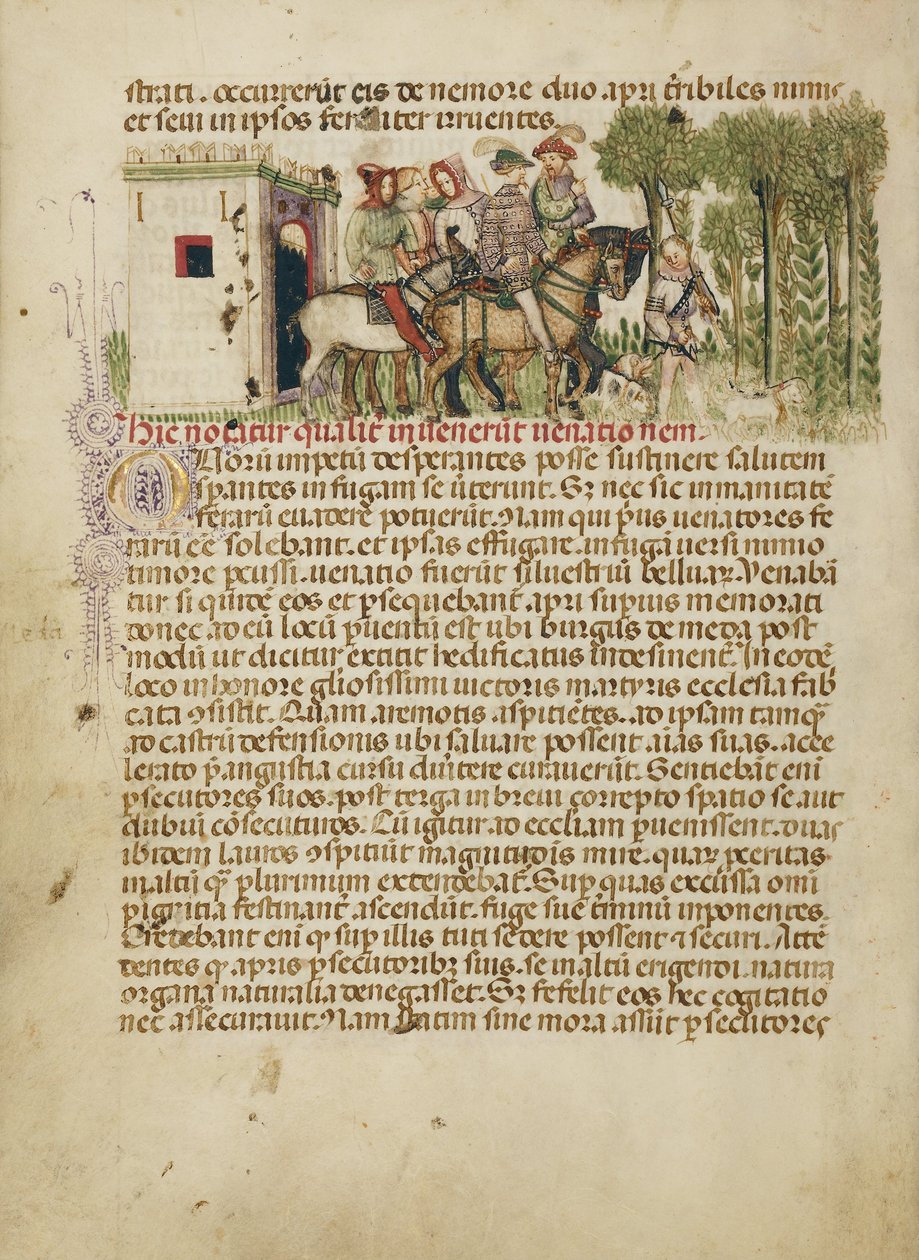 strati. occurrerūt eis de nemore duo apri t̄ribiles nimis
et seui in ipsos feraliter irruentes.
Hic notatur qualit̄ inuenerūt uenationem.
Quorū impetū desperantes posse sustinere salutem
sperantes in fugam se ūterunt. Sꝫ nec sic inmanitatē
ferarū euadere potuerūt. Nam qui p̄us uenatores fe
rarū eē solebant. et ipsas effugare. in fugā uersi nimio
timore ꝑcussi. uenatio fuerūt siluestriū belluaꝝ. Venabā
tur siquidē eos et ꝑsequebant̄ apri supius memorati
donec ad eū locū ꝑuentū est ubi burgus de meda post
modū ut dicitur extitit hedificatus indesinent̄. In eodē
loco in honore gl̄iosissimi uictoris martyris ecclesia fab
cata ꝯsistit. Quam a remotis aspitiētes. ad ipsam tamqꝫ
ad castrū defensionis ubi saluare possent aīas suas. acce
lerato p̄ angustia cursu diūtere curauerūt. Sentiebāt enī
ꝑsecutores suos. post terga in breui correpto spatio se aut
dubiū cōsecuturos. Cū igitur ad eccl̄iam ꝑuenissent. duas
ibidem lauros ꝯspitiūt magnitudīs mire. quaꝝ ꝓceritas
in altū qꝫ plurimum extendebat̄. Suꝑ quas excussa omī
pigritia festinant̄ ascendūt. fuge sue t̄minū inponentes.
Credebant enī ꝙ suꝑ illis tuti sedere possent ⁊ securi. Attē
dentes ꝙ apris ꝑsecutoribꝫ suis. se in altū erigendi. natura
organa naturalia denegasset. Sꝫ fefelit eos hec cogitatio
nec assecurauit. Nam statim sine mora assūt ꝑsecutores